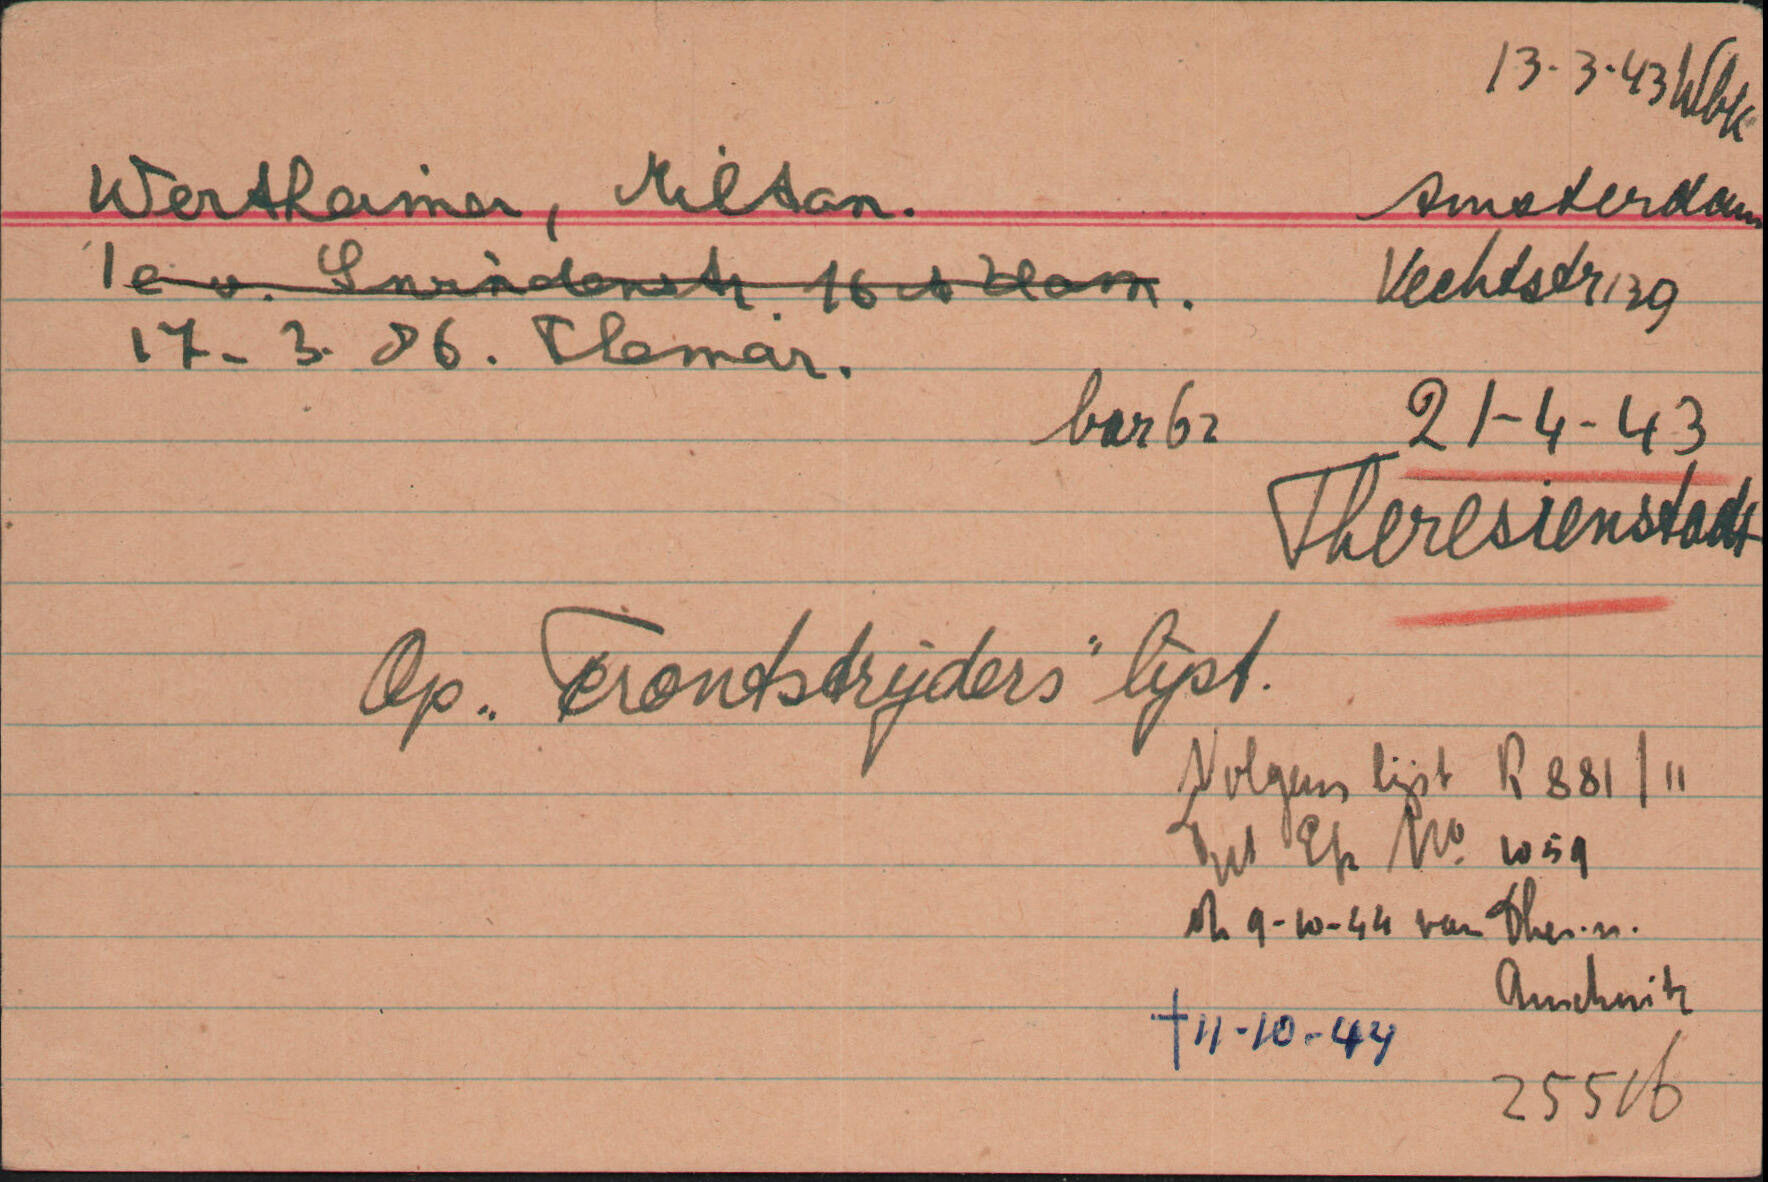 13-3-43 Wbk
Wertheimer, Milton.
Amsterdam
1e v. Swindenstr 16 A'dam.
Vechtstr 139
17-3-86. Themar.
bar 62
21-4-43
Theresienstadt
Op „Frontstrijders" lijst.
Volgens lijst R 881/11
No. 1059
9-10-44 van Ther. n.
Auschwitz
†11-10-44